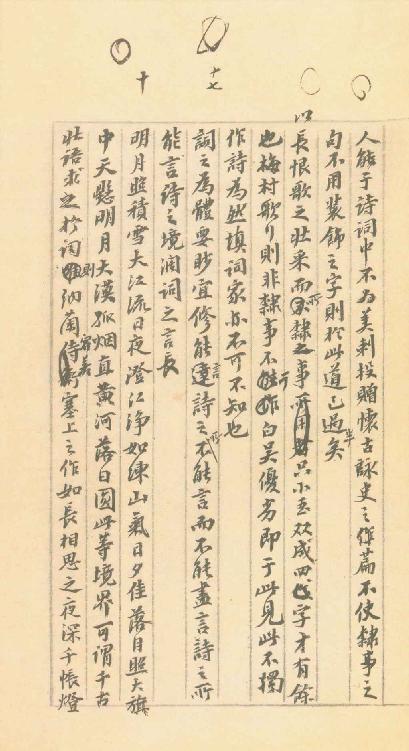 十七
十
人能于詩詞中不为美刺投贈懷古詠史之作篇不使隸事之
句不用裝飾之字則於此道已過半矣
以長恨歌之壯采而所隸之事只小玉双成四字才有餘
也梅村歌行則非隸事不行白吳優劣即于此見此不獨
作詩為然填詞家亦不可不知也
詞之為體要眇宜修能言詩之所不能言而不能盡言詩之所
能言詩之境闊詞之言長
明月照積雪大江流日夜澄江淨如練山氣日夕佳落日照大旗
中天懸明月大漠孤烟直黃河落日圓此等境界可謂千古
壯語求之於詞則納蘭容若塞上之作如長相思之夜深千帳燈